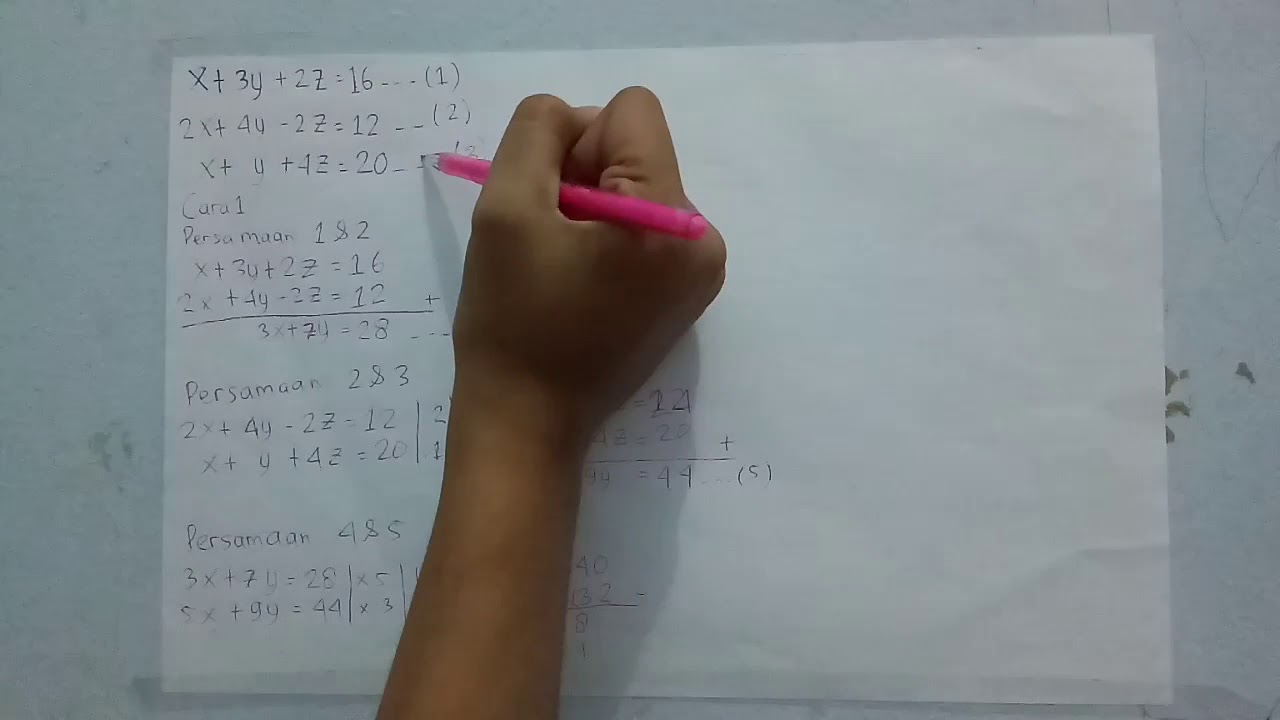 x + 3y + 2z = 16 --- (1)
2x + 4y - 2z = 12 -- (2)
x + y + 4z = 20 -- (3)
Cara 1
Persamaan 1 & 2
x + 3y + 2z = 16
2x + 4y - 2z = 12 +
3x + 7y = 28 ---
Persamaan 2 & 3
2x + 4y - 2z = 12 | 2
x + y + 4z = 20 | 1
4z = 20 +
9y = 44 ... (5)
Persamaan 4 & 5
3x + 7y = 28 | x 5 |
5x + 9y = 44 | x 3
40
132 -
8